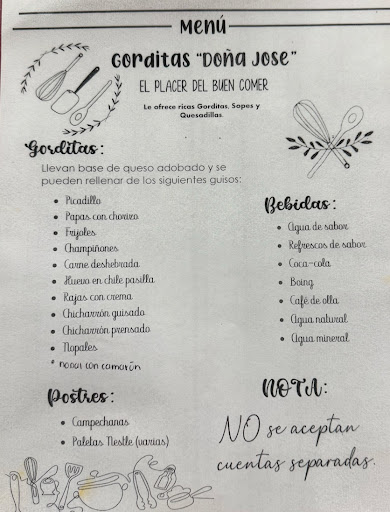 Menú
Gorditas "Doña Jose"
EL PLACER DEL BUEN COMER
Le ofrece ricas Gorditas, Sopes y
Quesadillas.
Gorditas:
Llevan base de queso adobado y se
pueden rellenar de los siguientes guisos:
• Picadillo
• Papas con chorizo
• Frijoles
• Champiñones
• Carne deshebrada
• Huevo en chile pasilla
• Rajas con crema
• Chicharrón guisado
• Chicharrón prensado
• Nopales
* nopal con camarón
Postres:
• Campechanas
• Paletas Nestle (varias)
Bebidas:
• Agua de sabor
• Refrescos de sabor
• Coca-cola
• Boing
• Café de olla
• Agua natural
• Agua mineral
NOTA:
NO se aceptan
cuentas separadas.